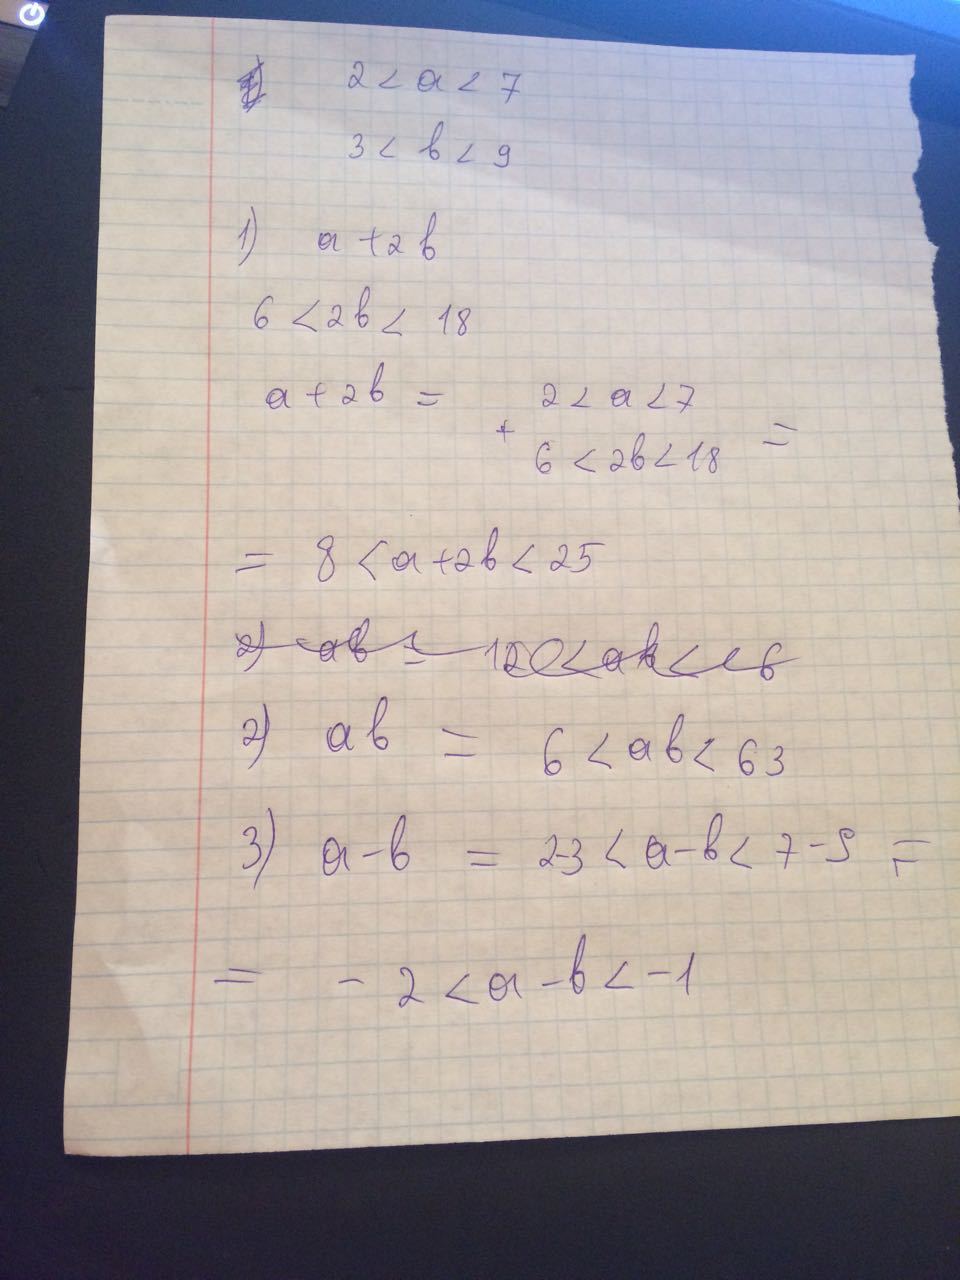 2 < a < 7
3 < b < 9
1) a + 2b
6 < 2b < 18
a + 2b = + 2 < a < 7
6 < 2b < 18 =
= 8 < a + 2b < 25
2) ab = 6 < ab < 63
3) a - b = 2-3 < a - b < 7 - 9 =
= - 2 < a - b < - 1